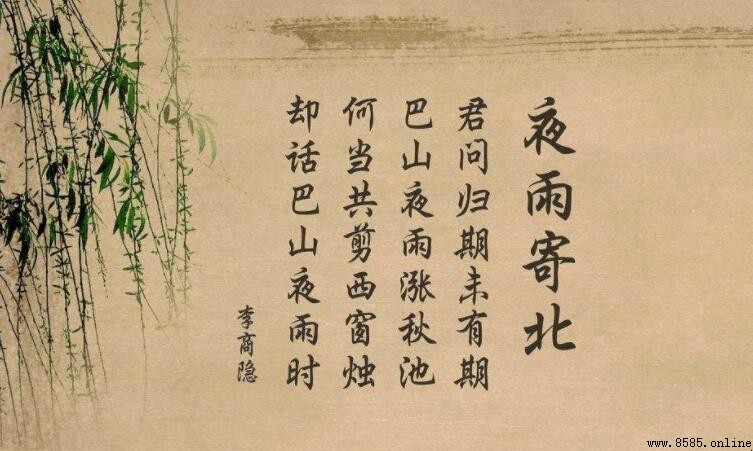 夜雨寄北
君问归期未有期
巴山夜雨涨秋池
何当共剪西窗烛
却话巴山夜雨时
李商隐
www.8585.online